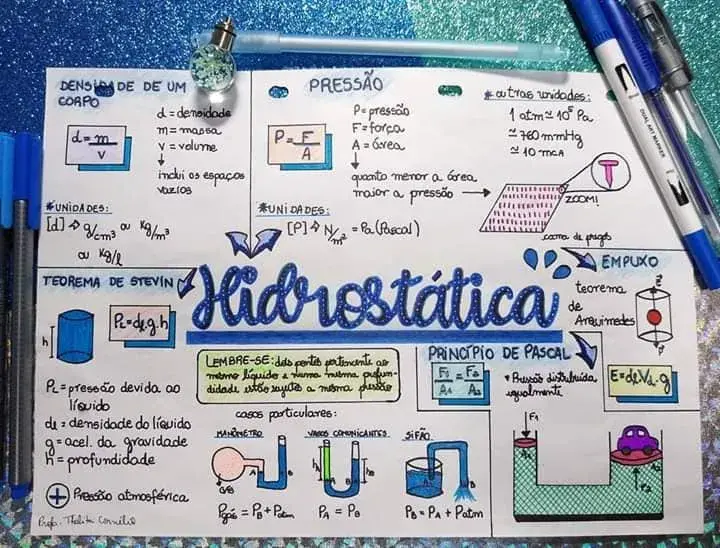 DENSIDADE DE UM
CORPO
d = m/v
d = densidade
m = massa
v = volume
↓
inclui os espaços
vazios
*UNIDADES:
[d] → g/cm³ ou kg/m³
ou kg/l
PRESSÃO
P = F/A
P = pressão
F = força
A = área
↓
quanto menor a área
maior a pressão →
*UNIDADES:
[P] → N/m² = Pa (Pascal)
*outras unidades:
1 atm ≃ 10⁵ Pa
≃ 760 mmHg
≃ 10 mca
ZOOM!
cama de pregos
Hidrostática
TEOREMA DE STEVIN
h
PL = dL.g.h
PL = pressão devida ao
líquido
dL = densidade do líquido
g = acel. da gravidade
h = profundidade
+ Pressão atmosférica
Profa. Thalita
LEMBRE-SE: dois pontos pertencente ao
mesmo líquido e numa mesma profun-
didade estão sujeitos a mesma pressão
casos particulares:
MANÔMETRO
GÁS
A
B
Pgás = PB + Patm
VASOS COMUNICANTES
h
h
A
B
PA = PB
SIFÃO
A
B
PB = PA + Patm
PRINCÍPIO DE PASCAL
F1/A1 = F2/A2
* Pressão distribuída
igualmente
F1
A1
A2
F2
EMPUXO
teorema
de
Arquimedes
E
P
E = dL.Vd.g
DUAL ART MARKER